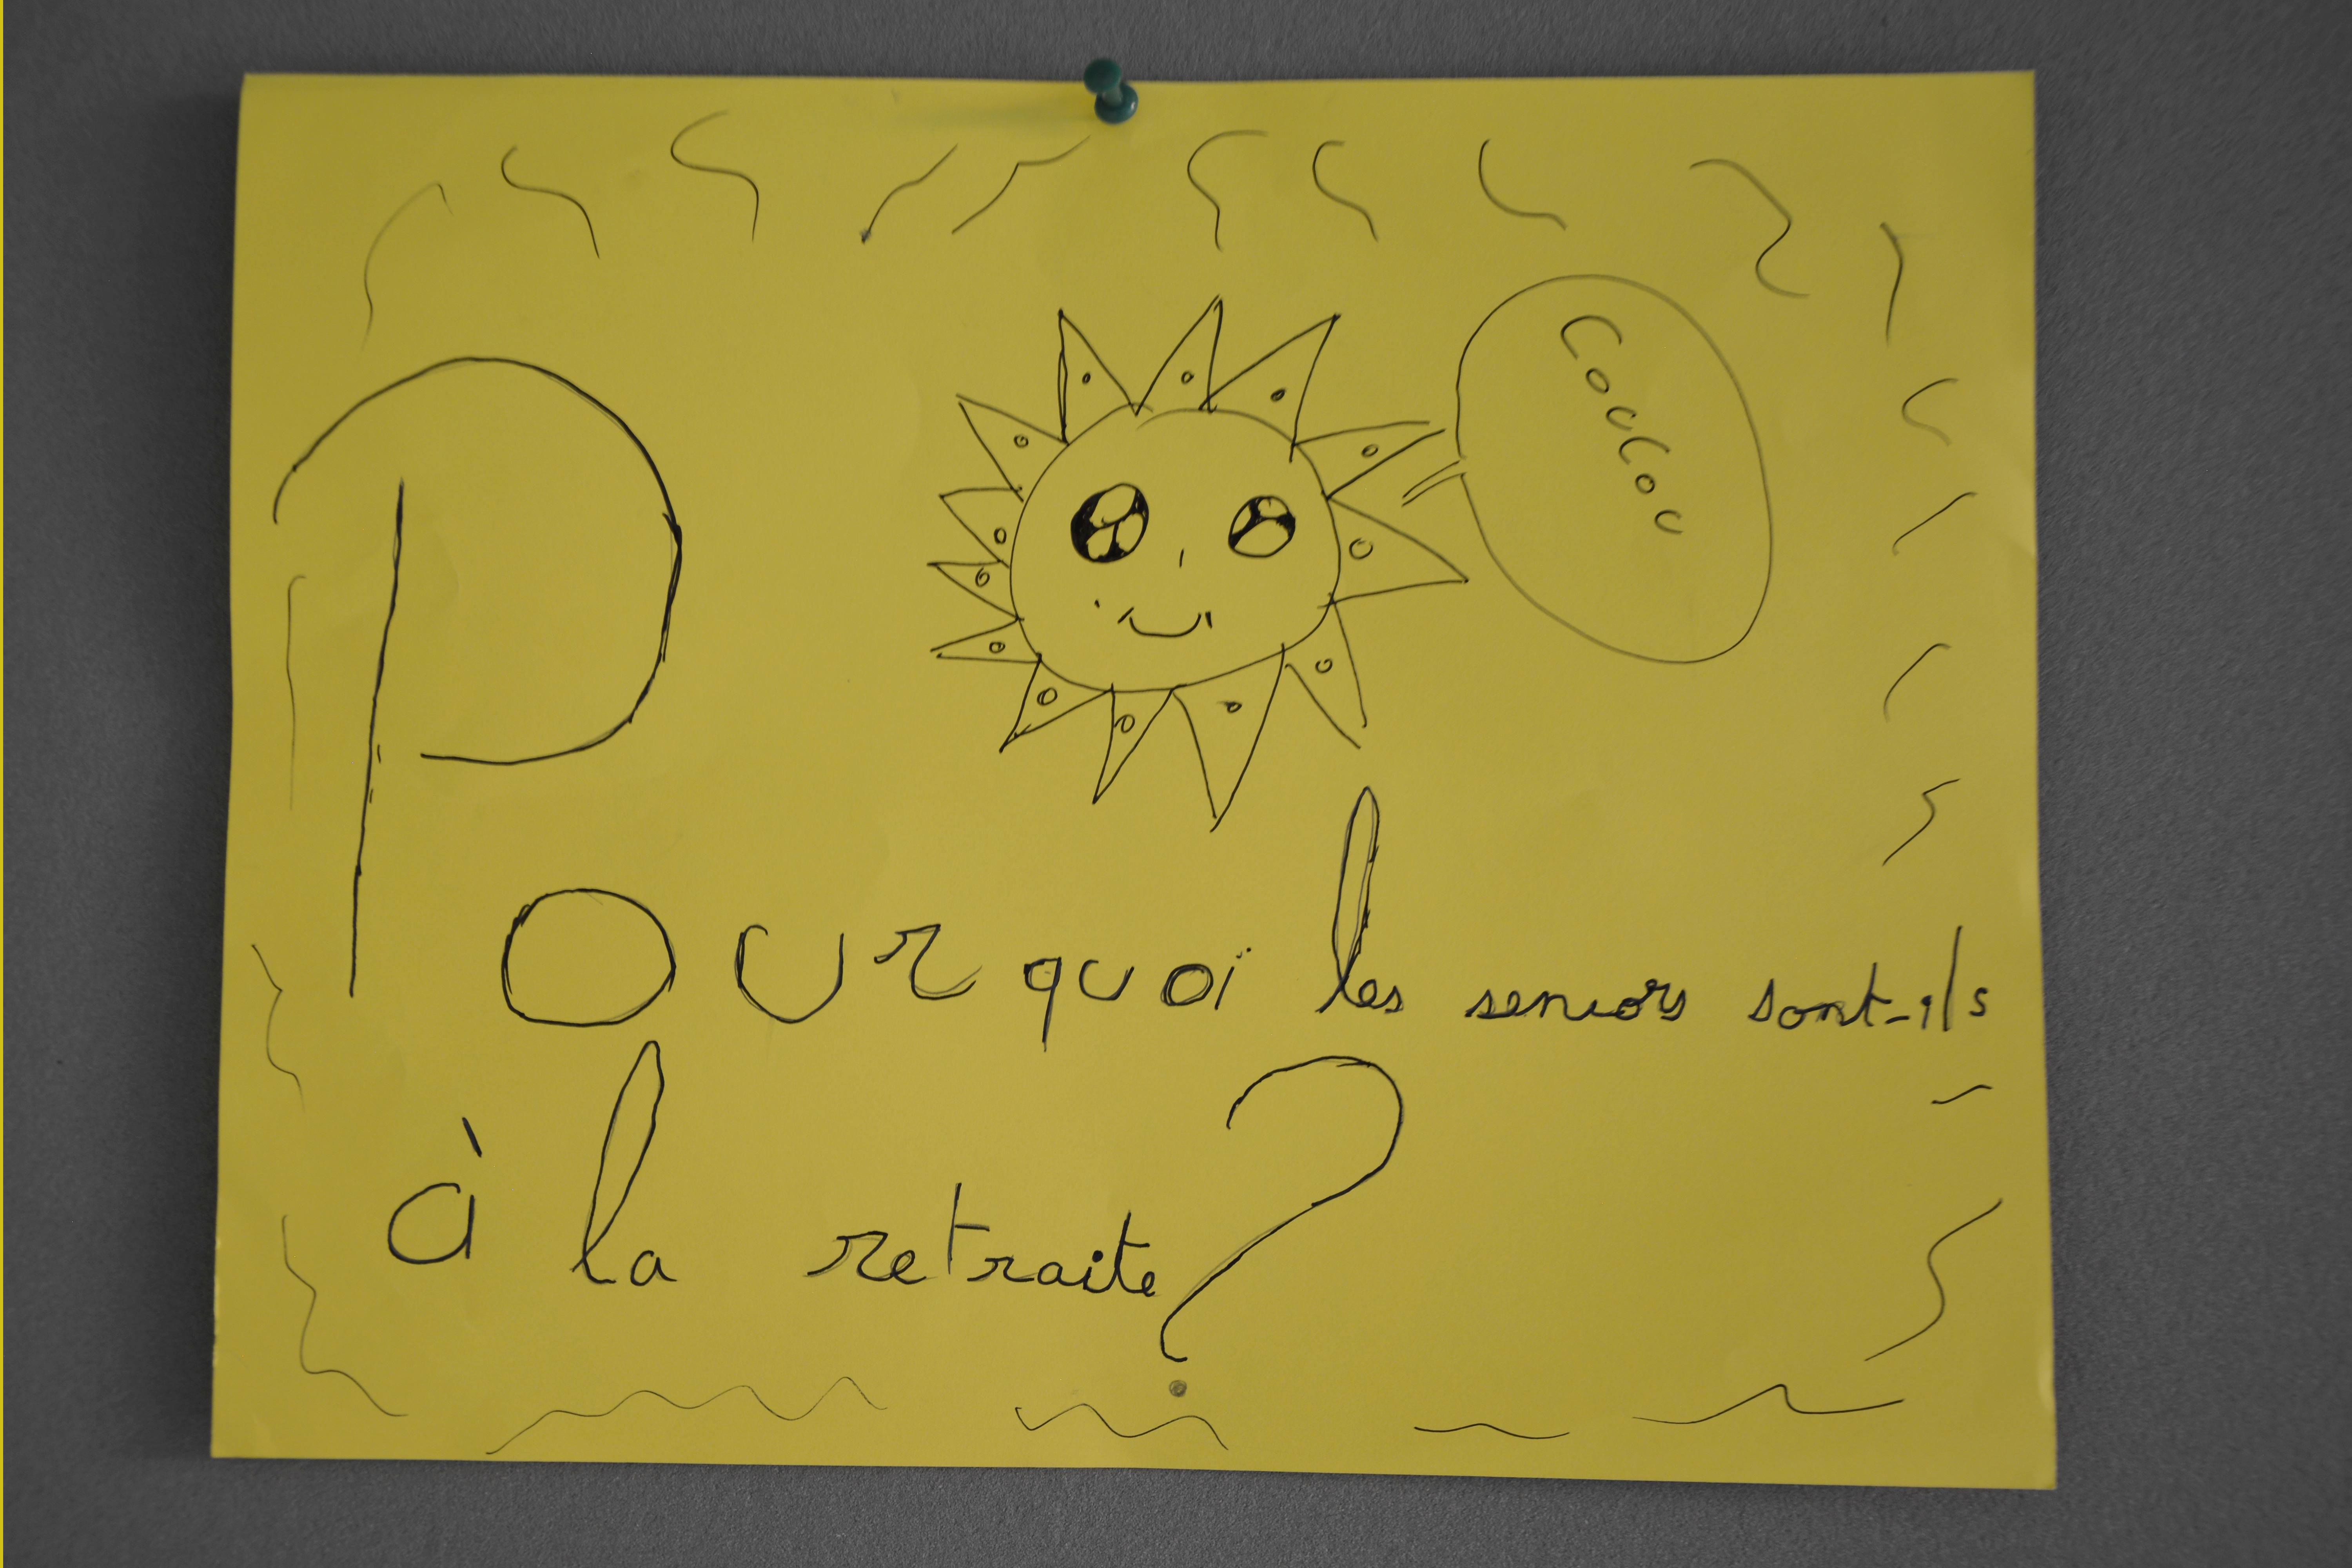 Coucou
Pourquoi les seniors sont-ils
à la retraite ?